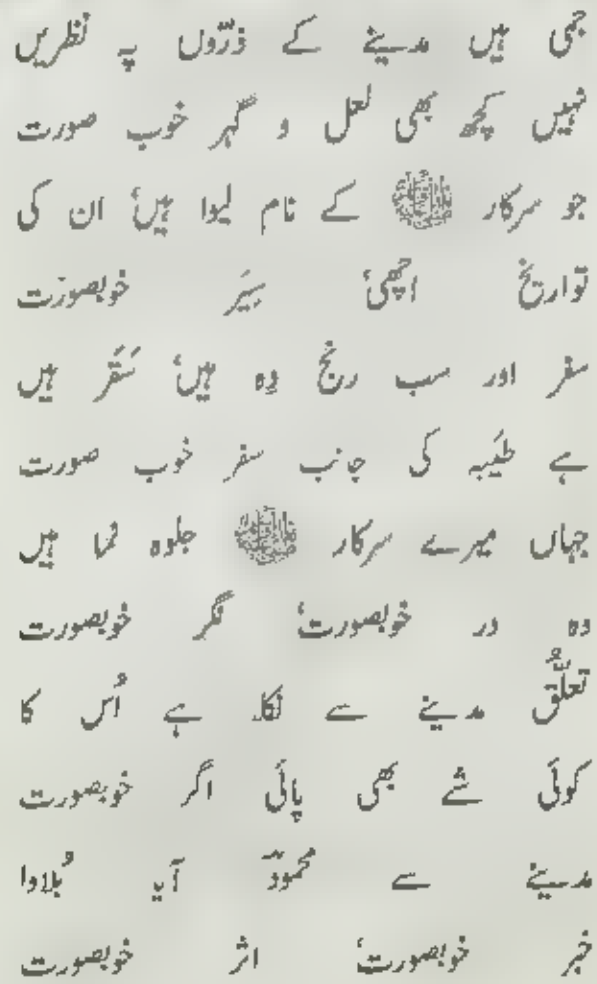 جمی ہیں مدینے کے ذرّوں پہ نظریں
نہیں کچھ بھی لعل و گہر خوب صورت
جو سرکار ﷺ کے نام لیوا ہیں‘ ان کی
تواریخ اچھی‘ سِیَر خوبصورت
سفر اور سب رنج دِہ ہیں‘ سَقَر ہیں
ہے طیَبہ کی جانب سفر خوب صورت
جہاں میرے سرکار ﷺ جلوہ نما ہیں
وہ در خوبصورت‘ نگر خوبصورت
تعلُّق مدینے سے نکلا ہے اُس کا
کوئی شے بھی پائی اگر خوبصورت
مدینے سے محمودؔ آیا بُلاوا
خبر خوبصورت‘ اثر خوبصورت